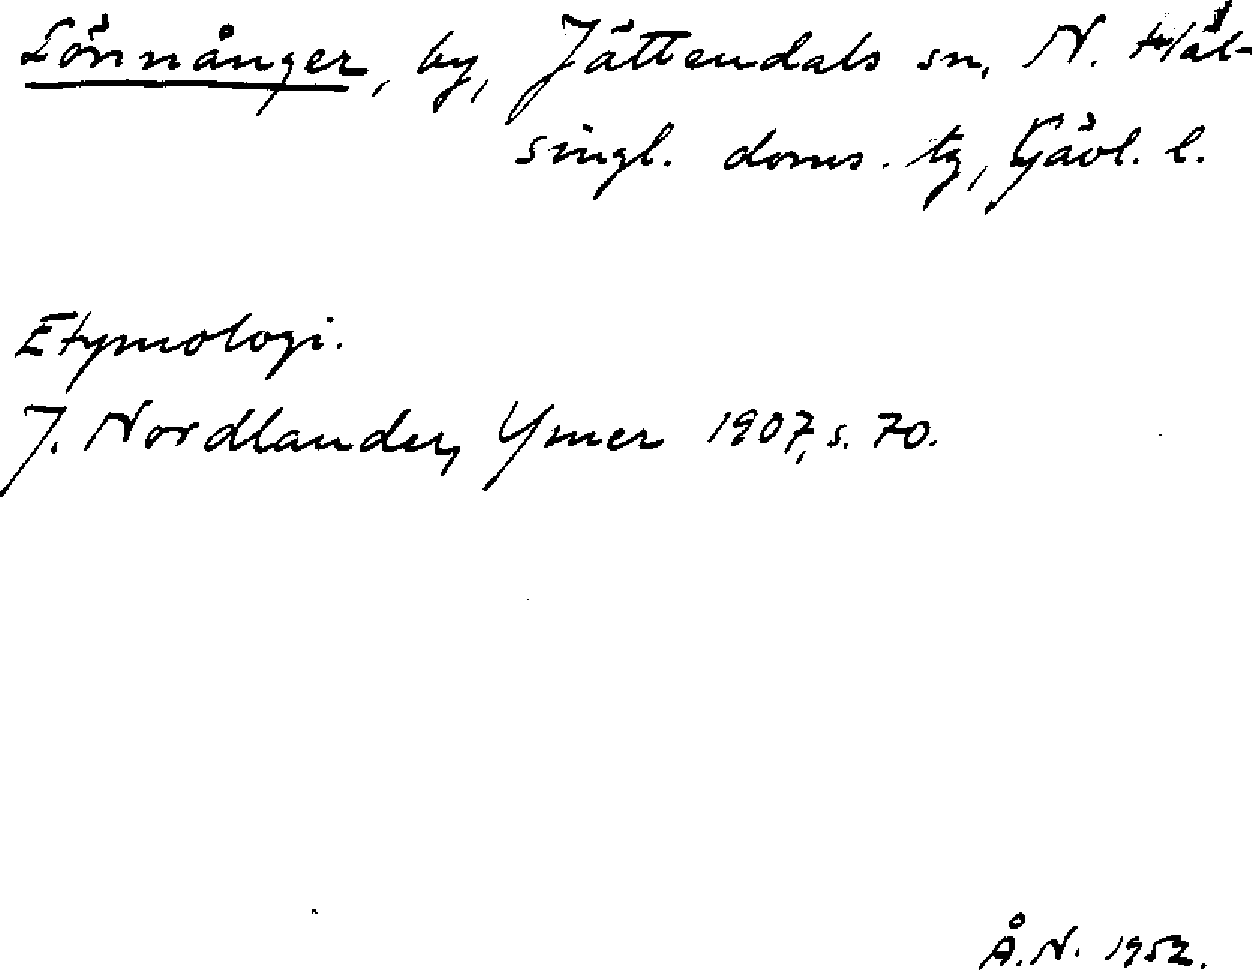 Lönnånger, by, Jättendals sn, N. Häl-
singl. doms. tg, Gävl. l.
Etymologi.
J. Nordlander, Ymer 1907, s. 70.
Å.N. 1952.